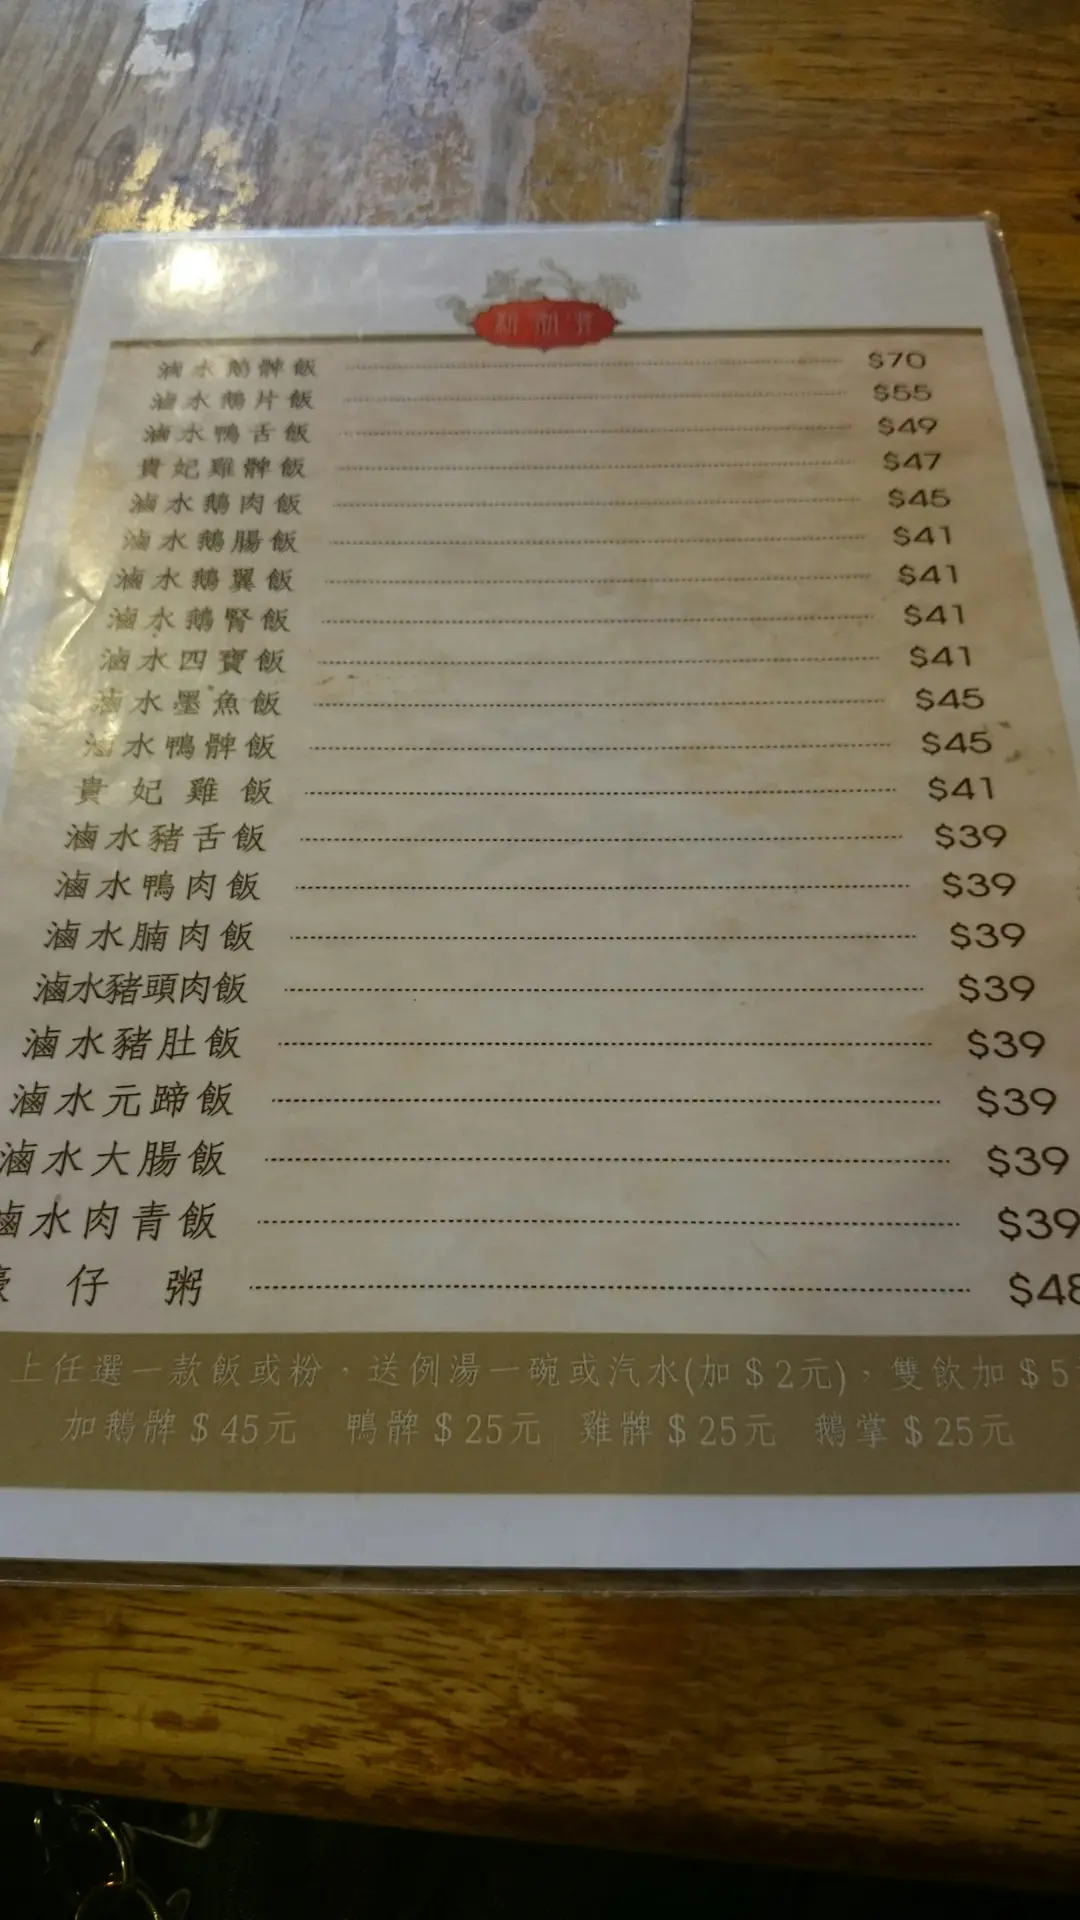 滷水鵝髀飯 $70
滷水鵝片飯 $55
滷水鴨舌飯 $49
貴妃雞髀飯 $47
滷水鵝肉飯 $45
滷水鵝腸飯 $41
滷水鵝翼飯 $41
滷水鵝腎飯 $41
滷水四寶飯 $41
滷水墨魚飯 $45
滷水鴨髀飯 $45
貴妃雞飯 $41
滷水豬舌飯 $39
滷水鴨肉飯 $39
滷水腩肉飯 $39
滷水豬頭肉飯 $39
滷水豬肚飯 $39
滷水元蹄飯 $39
滷水大腸飯 $39
滷水肉青飯 $39
仔粥 $48
上任選一款飯或粉，送例湯一碗或汽水(加$2元)，雙飲加$5
加鵝髀$45元 鴨髀$25元 雞髀$25元 鵝掌$25元